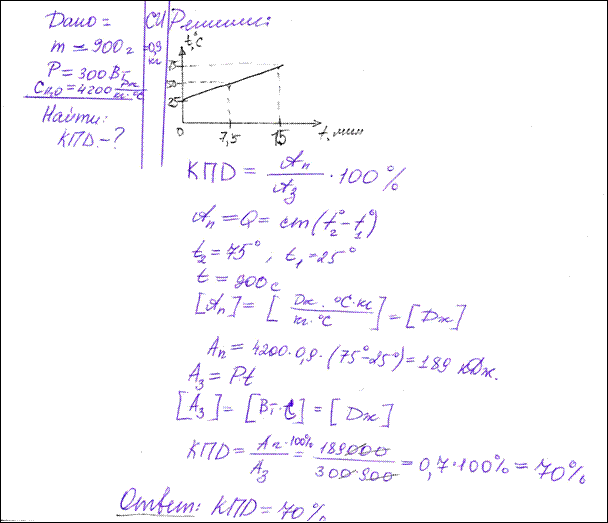 Дано =
m = 900 г
P = 300 Вт
C H₂O = 4200 Дж/кг·°C
Найти:
КПД - ?
СИ
0,9 кг
Решение:
t,°C
75
50
25
0 7,5 15 t, мин
КПД = Aп/Aз · 100%
Aп = Q = cm(t₂° - t₁°)
t₂ = 75°, t₁ = 25°
t = 900 с
[Aп] = [Дж · °C · кг / кг · °C] = [Дж]
Aп = 4200 · 0,9 · (75° - 25°) = 189 кДж.
Aз = P·t
[Aз] = [Вт · t] = [Дж]
КПД = Aп · 100% / Aз = 189000 / 300·900 = 0,7 · 100% = 70%
Ответ: КПД = 70%